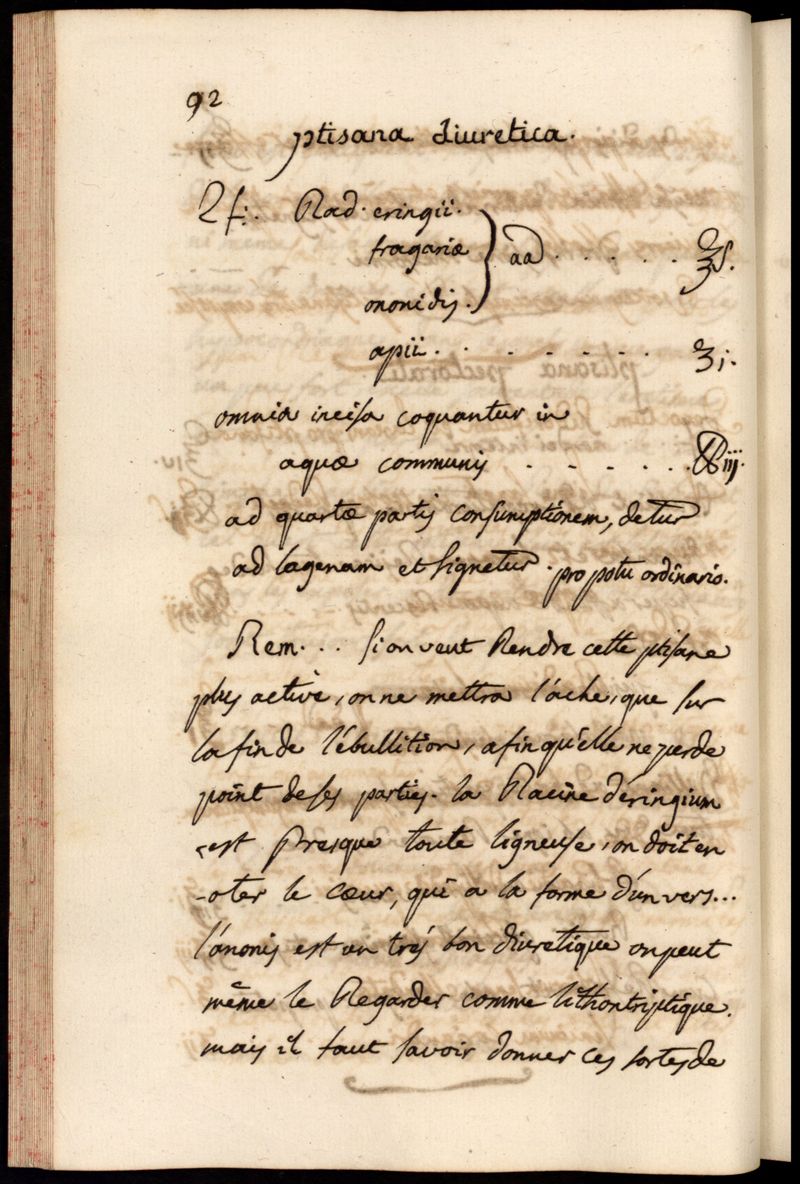 92
ptisana diuretica.
♃: Rad. eringii.
fragariæ } aa . . . . . ℥s.
ononidis.
apii . . . . . . . ʒi.
omnia incisa coquantur in
aquæ communis . . . . . . ℔iij.
ad quartæ partis consumptionem, detur
ad lagenam et signetur. pro potu ordinario.
Rem. . . si on veut Rendre cette ptisane
plus active, on ne mettra l'ache, que sur
la fin de l'ébullition, afin qu'elle ne perde
point de ses parties. la Racine d'éringium
est Presque toute ligneuse, on doit en
-oter le cœur, qui a la forme d'un vers...
l'ánonis est un trés bon diuretique on peut
même le Regarder comme lithontriptique.
mais il faut savoir donner ces sortes de